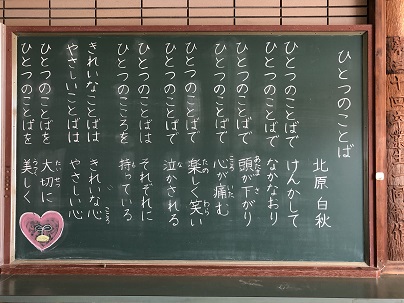 ひとつのことば
北原 白秋
ひとつのことばで けんかして
ひとつのことばで なかなおり
ひとつのことばで 頭が下がり
ひとつのことばで 心が痛む
ひとつのことばで 楽しく笑い
ひとつのことばで 泣かされる
ひとつのことばは それぞれに
ひとつのこころを 持っている
きれいなことばは きれいな心
やさしいことばは やさしい心
ひとつのことばを 大切に
ひとつのことばを 美しく